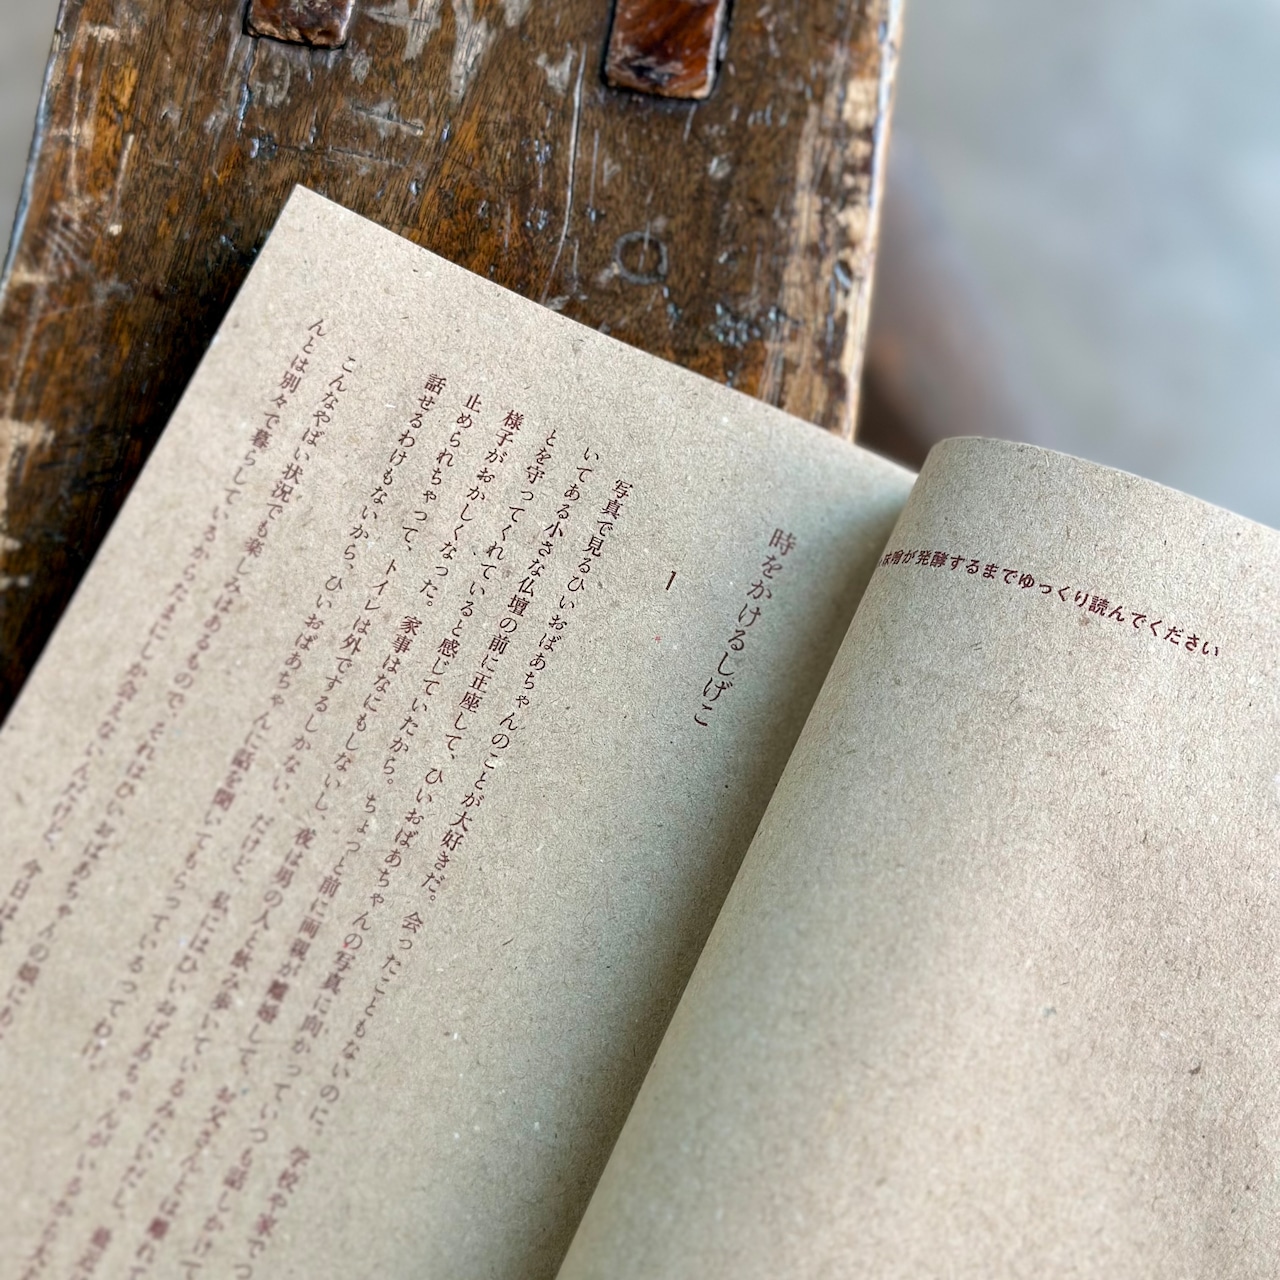 味噌が発酵するまでゆっくり読んでください
時をかけるしげこ
1
写真で見るひいおばあちゃんのことが大好きだ。会ったこともないのに、学校や家でつ
いてある小さな仏壇の前に正座して、ひいおばあちゃんの写真に向かっていつも話しかけて
とを守ってくれていると感じていたから。ちょっと前に両親が離婚して、お父さんとは離れて
様子がおかしくなった。家事はなにもしないし、夜は男の人と飲み歩いているみたいだし、最近
止められちゃって、トイレは外でするしかない。だけど、私にはひいおばあちゃんがいるから大丈
話せるわけもないから、ひいおばあちゃんに話を聞いてもらっているってわけ。
こんなやばい状況でも楽しみはあるもので、それはひいおばあちゃんの娘にあ
んとは別々で暮らしているからたまにしか会えないんだけど、今日は